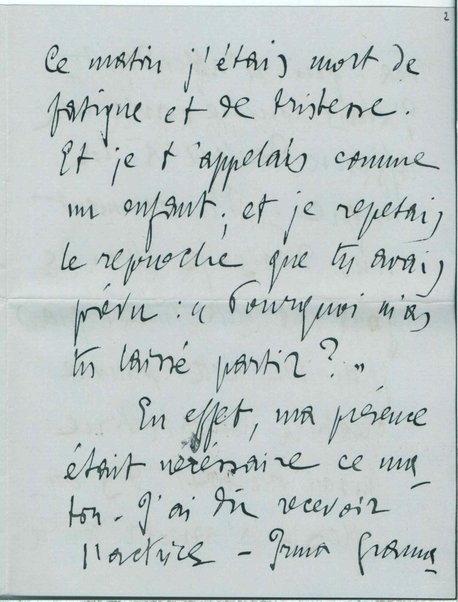 2
Ce matin j'étais mort de
fatigue et de tristesse.
Et je t'appelais comme
un enfant; et je repetais
le reproche que tu avais
prévu : « Pourquoi m'as
tu laissé partir ? »
En effet, ma présence
était nécessaire ce ma-
tin - J'ai dû recevoir
l'actrice - Irma Grama-